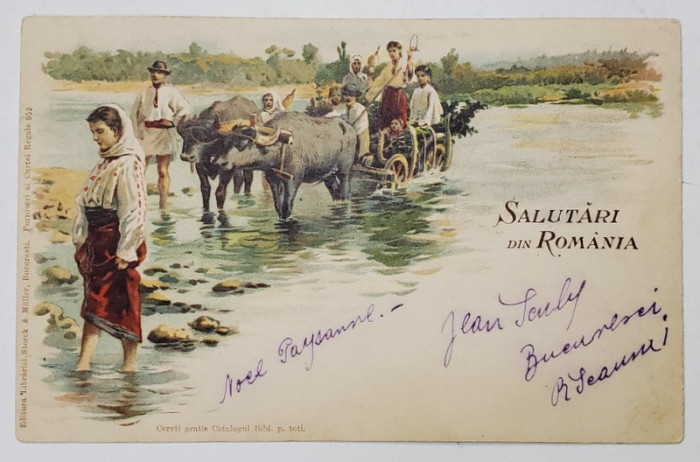 SALUTĂRI
DIN ROMÂNIA
Noel Paysanne. -
Jean
Bucuresci
Editura Librăriei Storck & Müller, Bucuresti. Furnisori ai Curtei Regale 952
Cereti gratis Catalogul Bibl. p. toti.